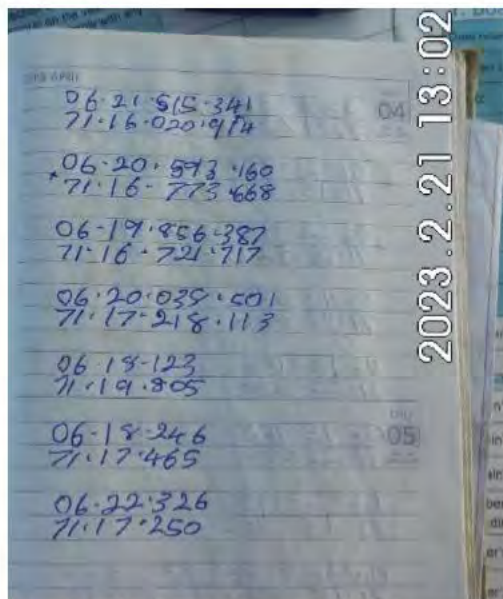 APRIL
04
06-21-515-341
71-16-020-914
06-20-593-160
71-16-773-668
06-19-856-387
71-16-721-717
06-20-038-501
71-17-218-113
06-18-123
71-19-805
06-18-246
71-17-465
05
06-22-326
71-17-250
2023.2.21 13:02